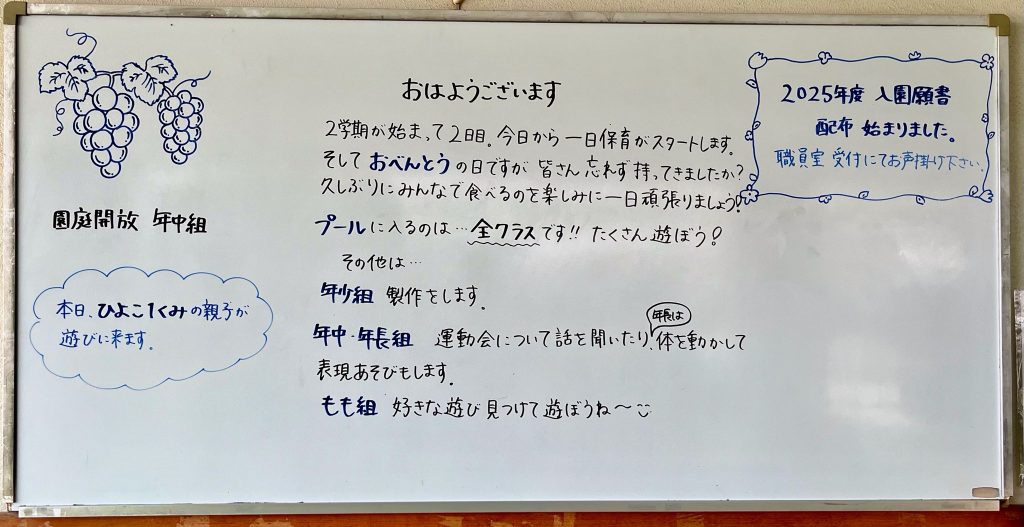 おはようございます
2学期が始まって2日目。今日から一日保育がスタートします。
そして おべんとう の日ですが 皆さん 忘れず 持ってきましたか?
久しぶりにみんなで食べるのを楽しみに一日頑張りましょう!
プールに入るのは…全クラスです!! たくさん遊ぼう!
その他は…
年少組 製作をします。
年中・年長組 運動会について話を聞いたり、体を動かして
年長は
表現あそびもします。
もも組 好きな遊び見つけて遊ぼうね〜
園庭開放 年中組
本日、ひよこ1くみの親子が
遊びに来ます。
2025年度 入園願書
配布 始まりました。
職員室 受付にてお声掛け下さい。